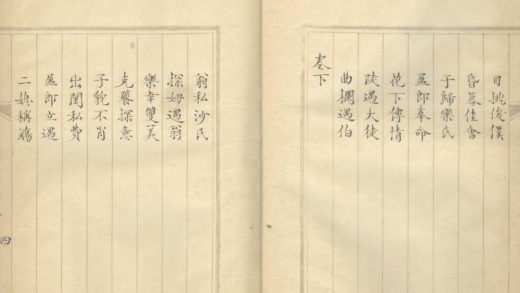 目挑俊僕
昏暮佳會
于歸樂氏
盈郎奉命
花下傳情
陡遇大徒
曲欄遇伯
卷下
翁私沙氏
探姆遇翁
樂幸雙美
克饔探意
子貌不肖
出閨私費
盈郎立遇
二媳稱觴
四